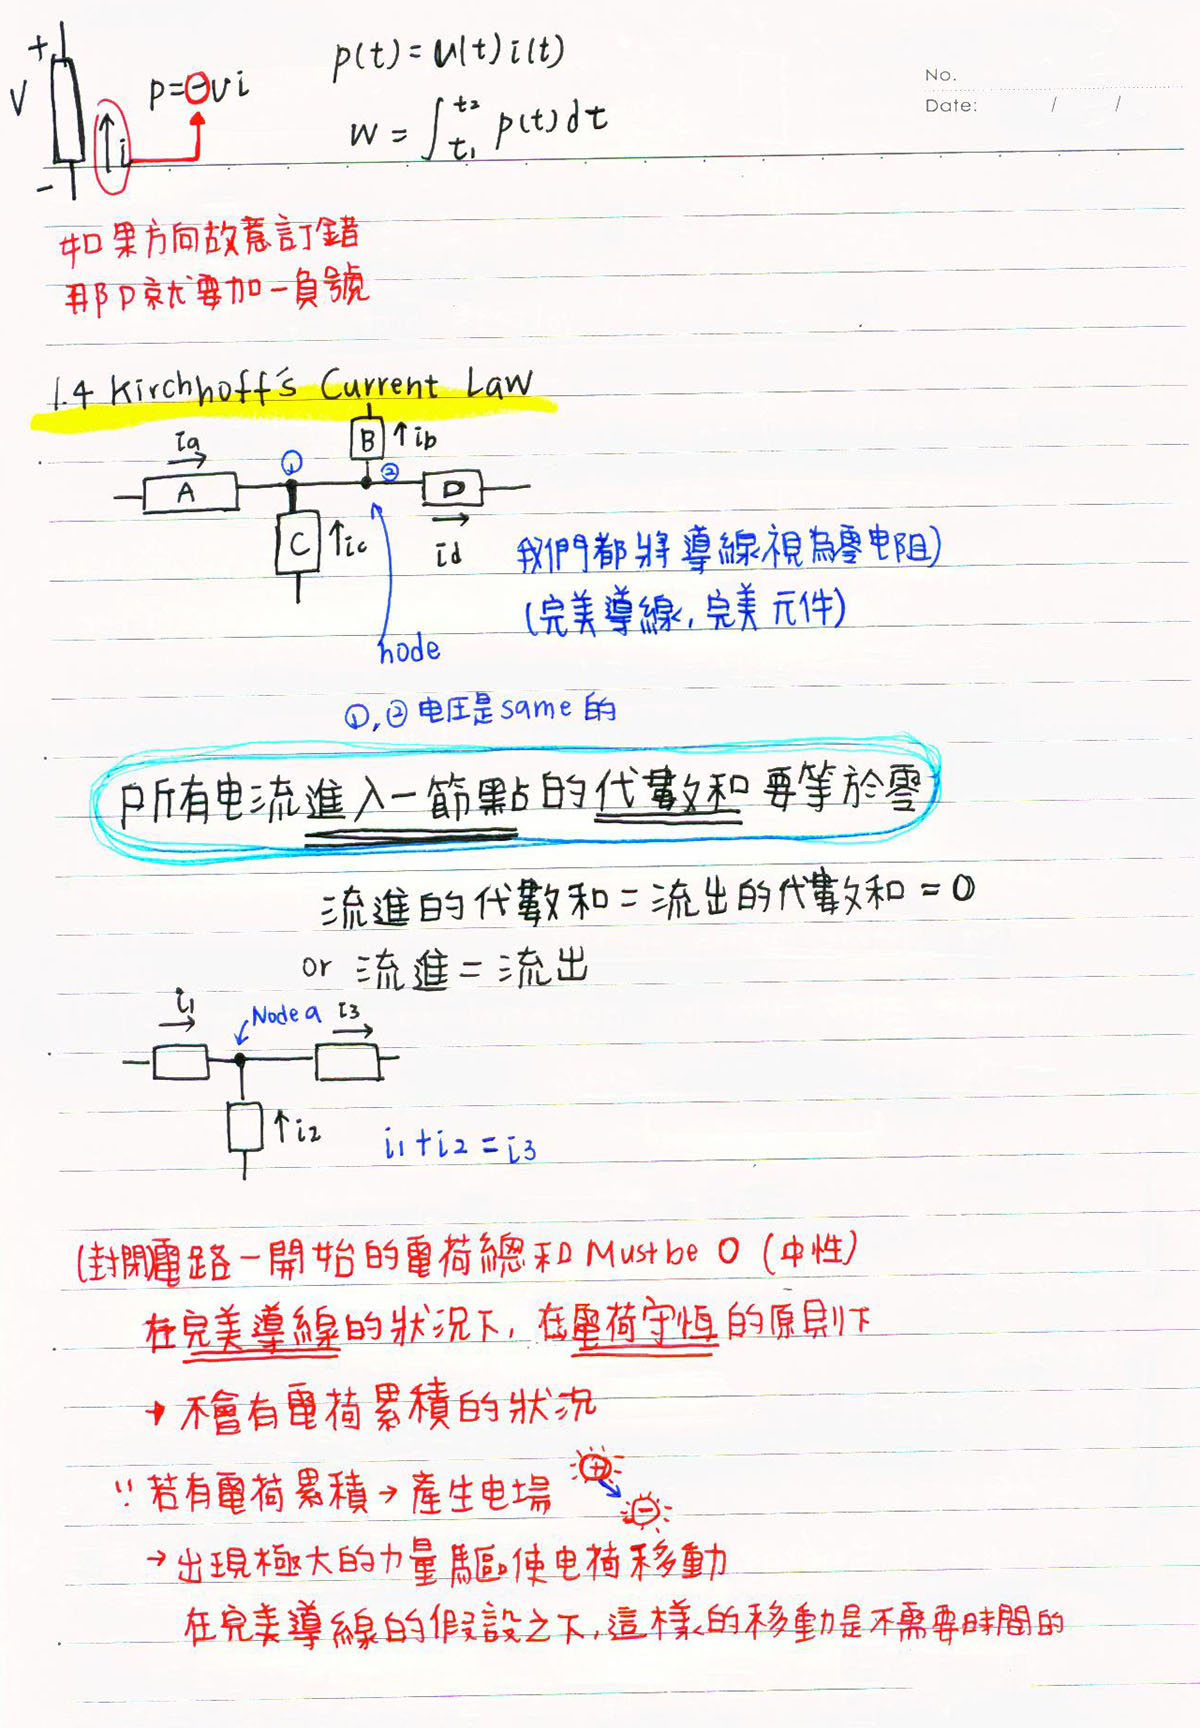 +
V
-
i
p=-vi
p(t)=v(t)i(t)
w=∫t₁t₂ p(t)dt
No.
Date: / /
如果方向故意訂錯
那P就要加一負號
1.4 Kirchhoff's Current Law
ia
A
①
B
ib
②
D
id
C
ic
node
我們都將導線視為零电阻)
(完美導線,完美元件)
①,②电压是same的
所有电流進入一節點的代數和要等於零
流進的代數和=流出的代數和=0
or 流進=流出
i1
Node a
i3
i2
i1+i2=i3
(封閉)電路一開始的電荷總和Must be 0 (中性)
在完美導線的狀況下,在電荷守恆的原則下
→不會有電荷累積的狀況
∵若有電荷累積→產生电場
+
-
→出現極大的力量驅使电荷移動
在完美導線的假設之下,這樣的移動是不需要時間的